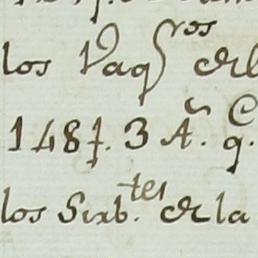 los Vaq^ros de l
1487. 3 A^n. q.
los Sirb.^tes de la